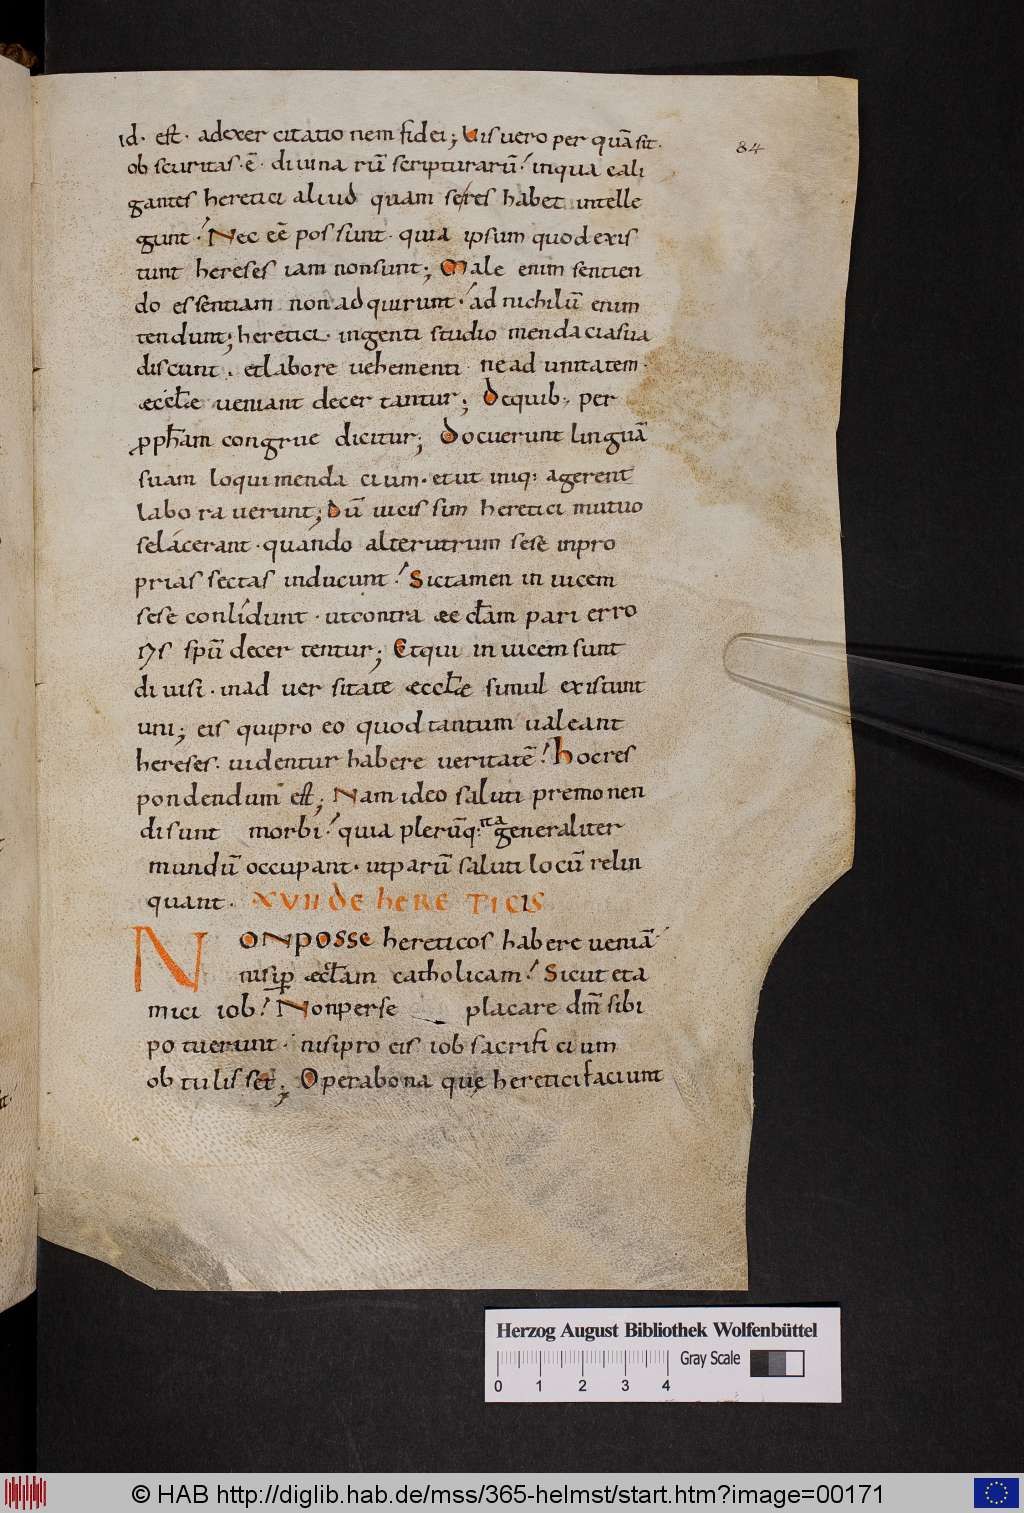 id· est· adexer citatio nem fidei; Vis uero per quā sit·
84
ob scuritas·ē· diuina rū scripturarū! inqua cali
gantes heretici aliud quam se res habet intelle
gunt! Nec eē pos sunt· quia ipsum quod exis
tunt hereses iam non sunt; Male enim sentien
do essentiam non ad quirunt! ad nichilū enim
tendunt; heretici· ingenti studio menda cia sua
discunt· et labore uehementi ne ad unitatem·
æccłe ueniant decer tantur; De quib; per
ꝓpham congrue dicitur; Docuerunt linguā
suam loqui menda cium· et ut iniq; agerent
labo ra uerunt; Dū uicis sim heretici mutuo
se lacerant· quando alterutrum sese inpro
prias sectas inducunt! Sic tamen in uicem
sese conlidunt· ut contra æccłam pari erro
ris spū decer tentur; Et qui in uicem sunt
di uisi· in ad uer sitate æccłe simul existunt
uni; eis qui pro eo quod tantum ualeant
hereses· uidentur habere ueritatē! hoc res
pondendum est; Nam ideo saluti premonen
di sunt morbi! quia plerūq; ita generaliter
mundū occupant· ut parū saluti locū relin
quant· XVII DE HERETICIS
NON POSSE hereticos habere ueniā
nisi ꝑ æccłam catholicam! Sicut et a
mici iob! Non per se placare dm̄ sibi
po tuerunt· nisi pro eis iob sacrifi cium
ob tulisset; Opera bona quę heretici faciunt
Herzog August Bibliothek Wolfenbüttel
Gray Scale
0 1 2 3 4
© HAB http://diglib.hab.de/mss/365-helmst/start.htm?image=00171